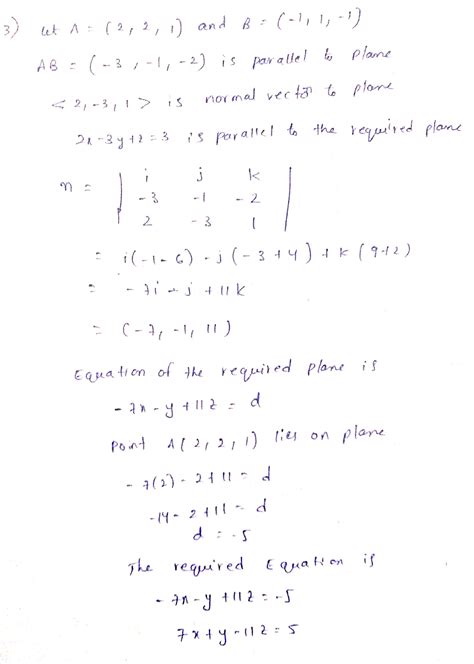 3) Let A = (2, 2, 1) and B = (-1, 1, -1)
AB = (-3, -1, -2) is parallel to plane
< 2, -3, 1 > is normal vector to plane
2x-3y+z=3 is parallel to the required plane
n = | i j k |
| -3 -1 -2 |
| 2 -3 1 |
= i(-1-6) - j(-3+4) + k(9+2)
= -7i - j + 11k
= (-7, -1, 11)
Equation of the required plane is
-7x - y + 11z = d
Point A(2, 2, 1) lies on plane
-7(2) - 2 + 11 = d
-14 - 2 + 11 = d
d = -5
The required Equation is
-7x - y + 11z = -5
7x + y - 11z = 5